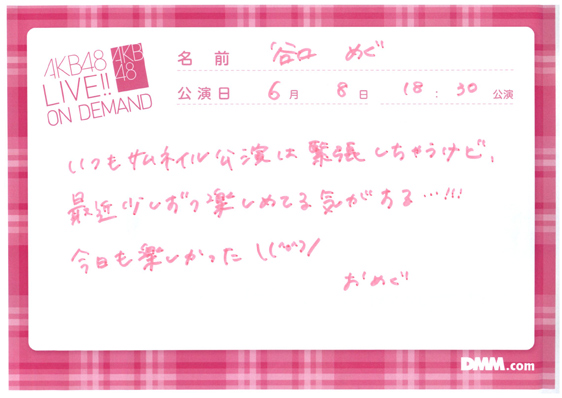 AKB48
LIVE!!
ON DEMAND
AKB
48
名前 谷口 めぐ
公演日 6月 8日 18:30 公演
いつもサムネイル公演は緊張しちゃうけど、
最近少しずつ楽しめてる気がする…!!!
今日も楽しかった \(^^)/
おめぐ
DMM.com